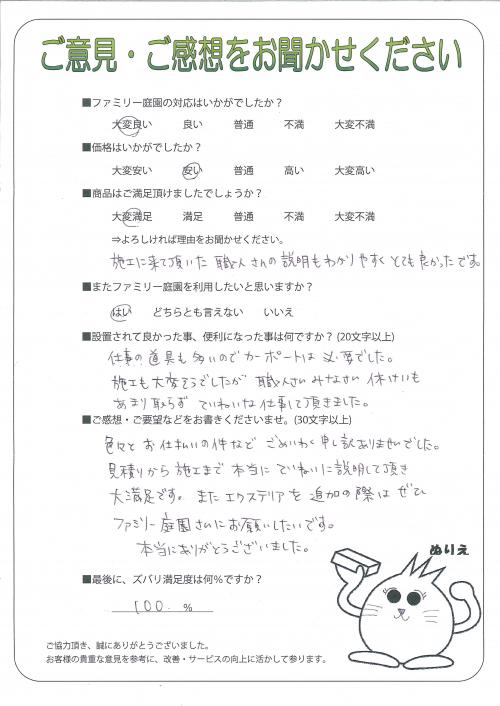 ご意見・ご感想をお聞かせください
■ファミリー庭園の対応はいかがでしたか？
大変良い 良い 普通 不満 大変不満
■価格はいかがでしたか？
大変安い 安い 普通 高い 大変高い
■商品はご満足頂けましたでしょうか？
大変満足 満足 普通 不満 大変不満
⇒よろしければ理由をお聞かせください。
施工に来て頂いた 職人さんの説明もわかりやすくとても良かったです。
■またファミリー庭園を利用したいと思いますか？
はい どちらとも言えない いいえ
■設置されて良かった事、便利になった事は何ですか？(20文字以上)
仕事の道具も多いのでカーポートは必要でした。
施工も大変そうでしたが 職人さんみなさん 休けいも
あまり取らず ていねいな仕事して頂きました。
■ご感想・ご要望などをお書きくださいませ。(30文字以上)
色々と お仕払いの件など ごめいわく申し訳ありませんでした。
見積りから施工まで本当に ていねいに説明して頂き
大満足です。また エクステリアを追加の際は ぜひ
ファミリー庭園さんにお願いしたいです。
本当にありがとうございました。
ぬりえ
■最後に、ズバリ満足度は何％ですか？
100. %
ご協力頂き、誠にありがとうございました。
お客様の貴重な意見を参考に、改善・サービスの向上に活かして参ります。